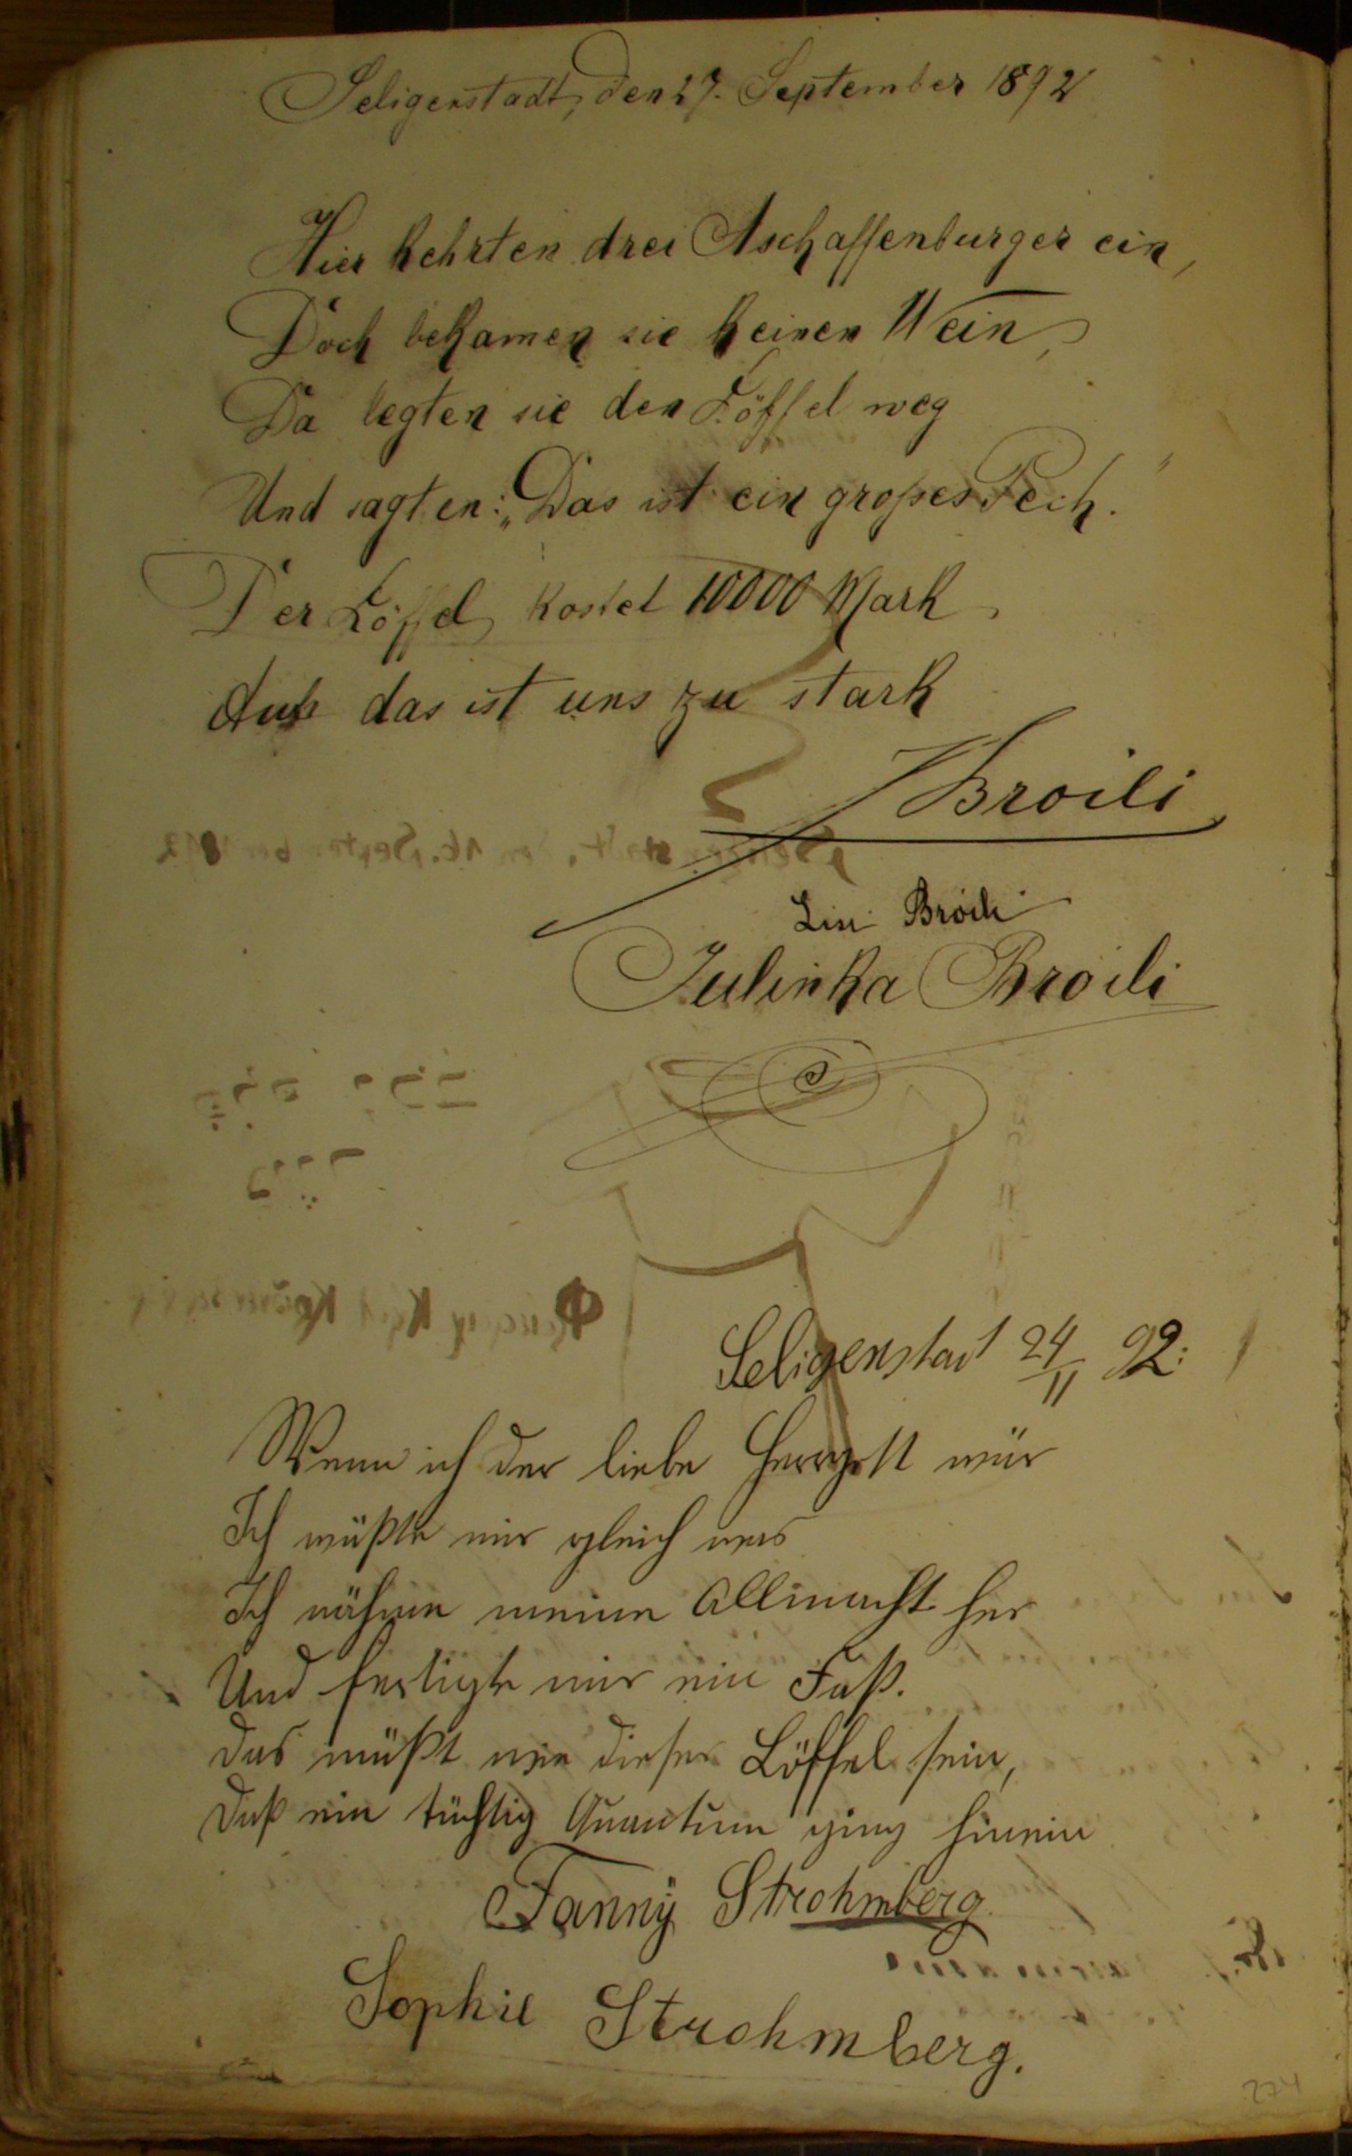 Seligenstadt, den 27. September 1892
Hier kehrten drei Aschaffenburger ein,
Doch bekamen sie keinen Wein,
Da legten sie den Löffel weg
Und sagten: „Das ist ein großes Pech."
Der Löffel kostet 10000 Mark,
das ist uns zu stark
Broili
Broili
Julinka Broili
Seligenstadt 24/11 92.
Wenn ich der liebe Herrgott wär
Ich wüßte mir gleich was
Ich nähme meine Allmacht her
Und fertigte mir ein Faß.
Das müßt wie dieser Löffel sein,
Daß ein tüchtig Quantum ging hinein
Fanny Strohmberg
Sophie Strohmberg.
274